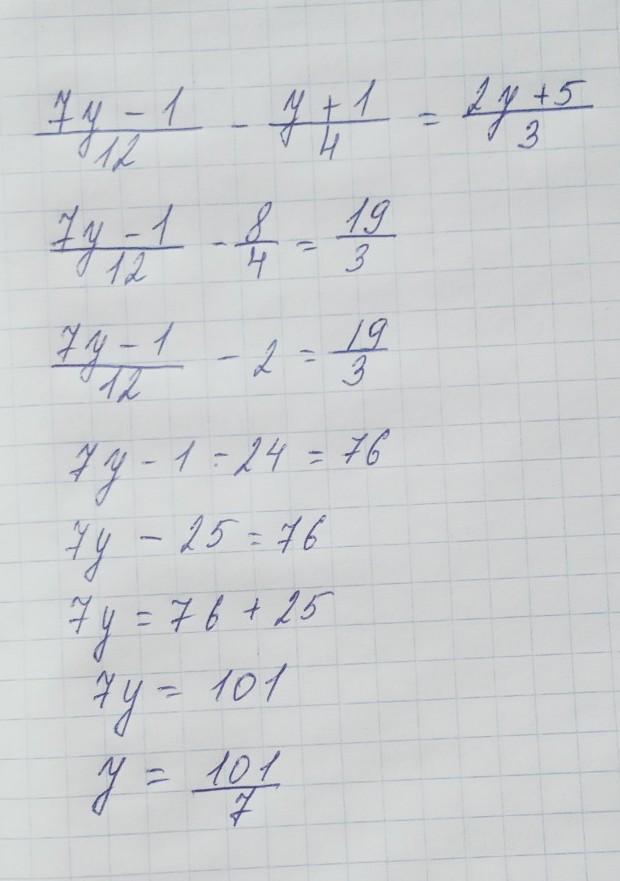 (7y - 1)/12 - (y + 1)/4 = (2y + 5)/3
(7y - 1)/12 - 8/4 = 19/3
(7y - 1)/12 - 2 = 19/3
7y - 1 - 24 = 76
7y - 25 = 76
7y = 76 + 25
7y = 101
y = 101/7